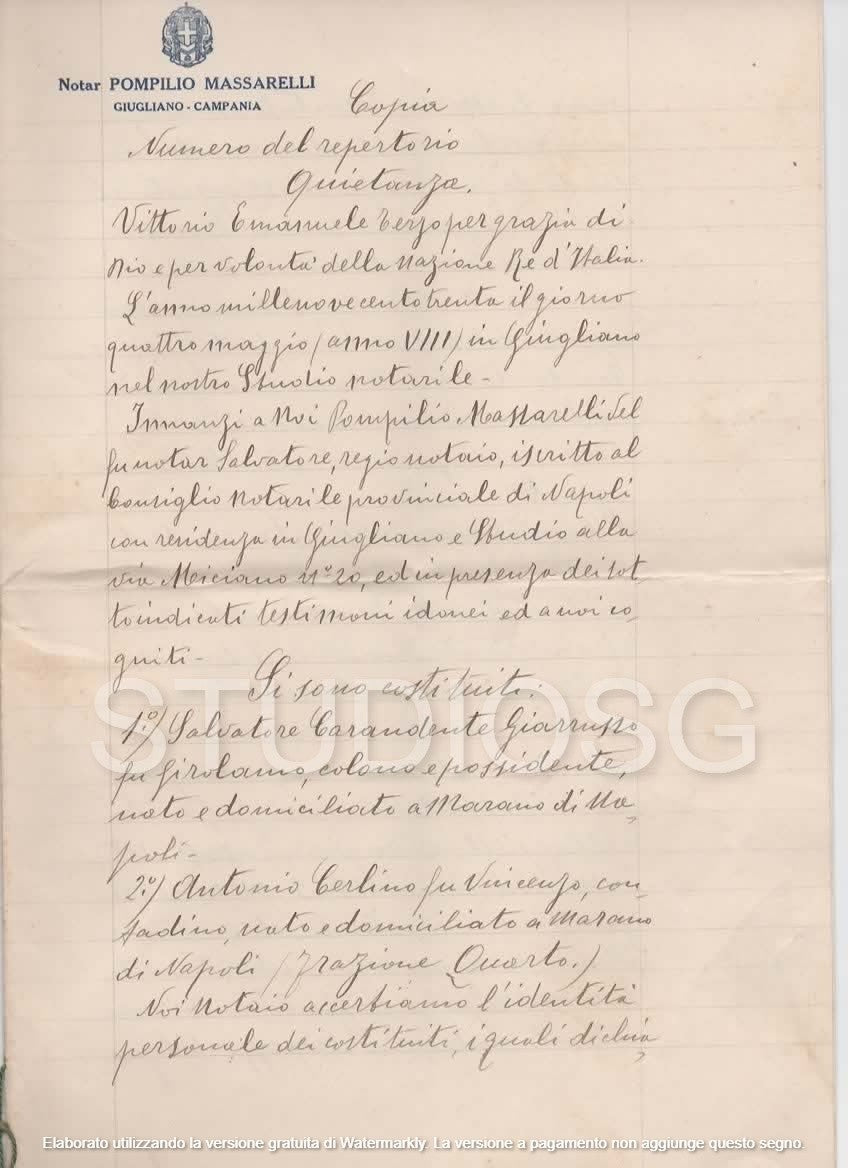 Notar POMPILIO MASSARELLI
GIUGLIANO - CAMPANIA
Copia
Numero del repertorio
Quietanza.
Vittorio Emanuele Terzo per grazia di
Dio e per volontà della Nazione Re d'Italia.
L'anno millenovecentotrenta il giorno
quattro maggio (anno VIII) in Giugliano
nel nostro Studio notarile -
Innanzi a Noi Pompilio Massarelli del
fu notar Salvatore, regio notaio, iscritto al
Consiglio Notarile provinciale di Napoli
con residenza in Giugliano e Studio alla
via Miciano n° 20, ed in presenza dei sot,
toindicati testimoni idonei ed a noi co,
gniti -
Si sono costituiti:
1°) Salvatore Carandente Giarrusso
fu Girolamo, colono e possidente,
nato e domiciliato a Marano di Na,
poli -
2°) Antonio Cerlino fu Vincenzo, con,
tadino, nato e domiciliato a Marano
di Napoli (frazione Quarto.)
Noi Notaio accertiamo l'identità
personale dei costituiti, i quali dichia,
STUDIOSG
Elaborato utilizzando la versione gratuita di Watermarkly. La versione a pagamento non aggiunge questo segno.